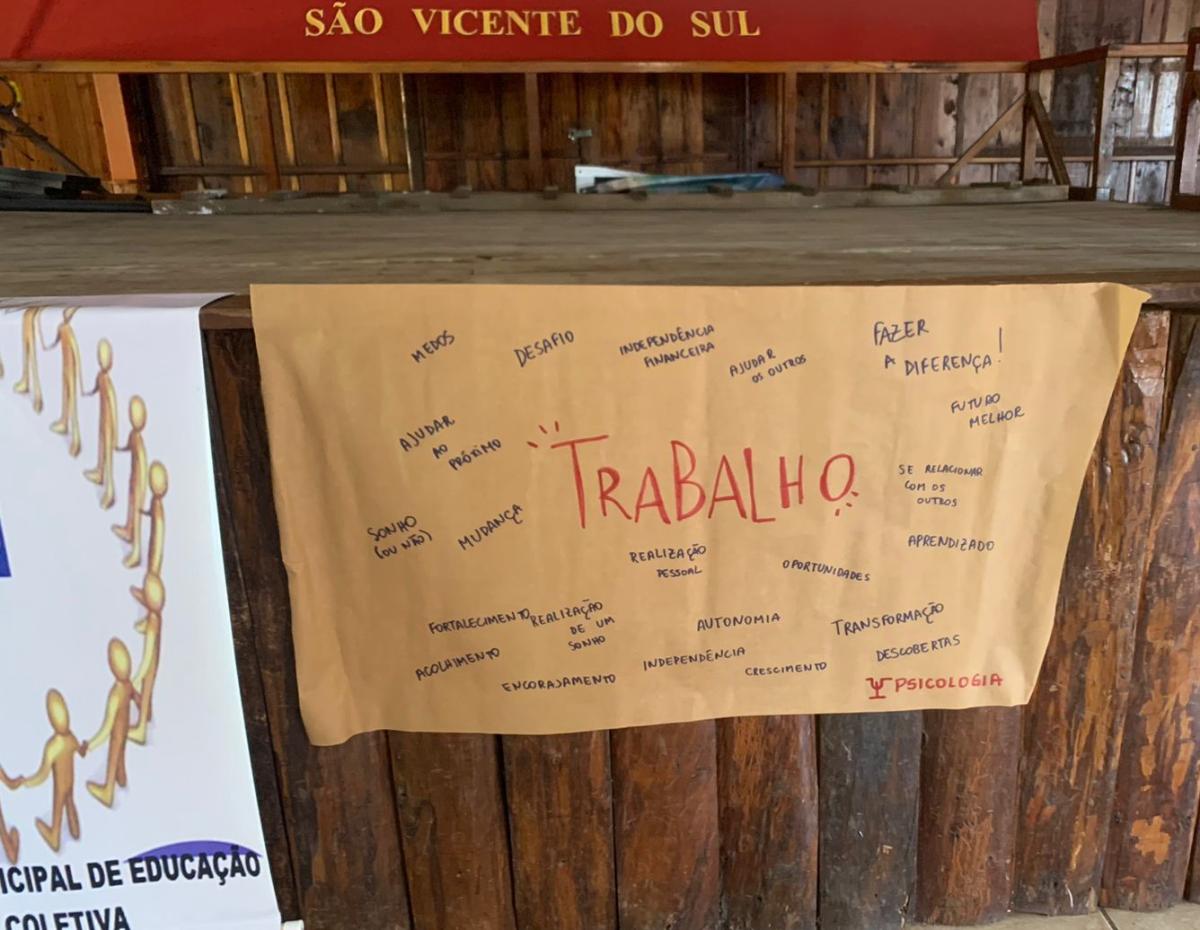 SÃO VICENTE DO SUL
MEDOS
DESAFIO
INDEPENDÊNCIA
FINANCEIRA
AJUDAR
OS OUTROS
FAZER
A DIFERENÇA!
FUTURO
MELHOR
AJUDAR
AO
PRÓXIMO
TRABALHO
SE RELACIONAR
COM OS
OUTROS
SONHO
(OU NÃO)
MUDANÇA
REALIZAÇÃO
PESSOAL
OPORTUNIDADES
APRENDIZADO
FORTALECIMENTO
REALIZAÇÃO
DE UM
SONHO
AUTONOMIA
TRANSFORMAÇÃO
ACOLHIMENTO
ENCORAJAMENTO
INDEPENDÊNCIA
CRESCIMENTO
DESCOBERTAS
Ψ PSICOLOGIA
ICIPAL DE EDUCAÇÃO
COLETIVA